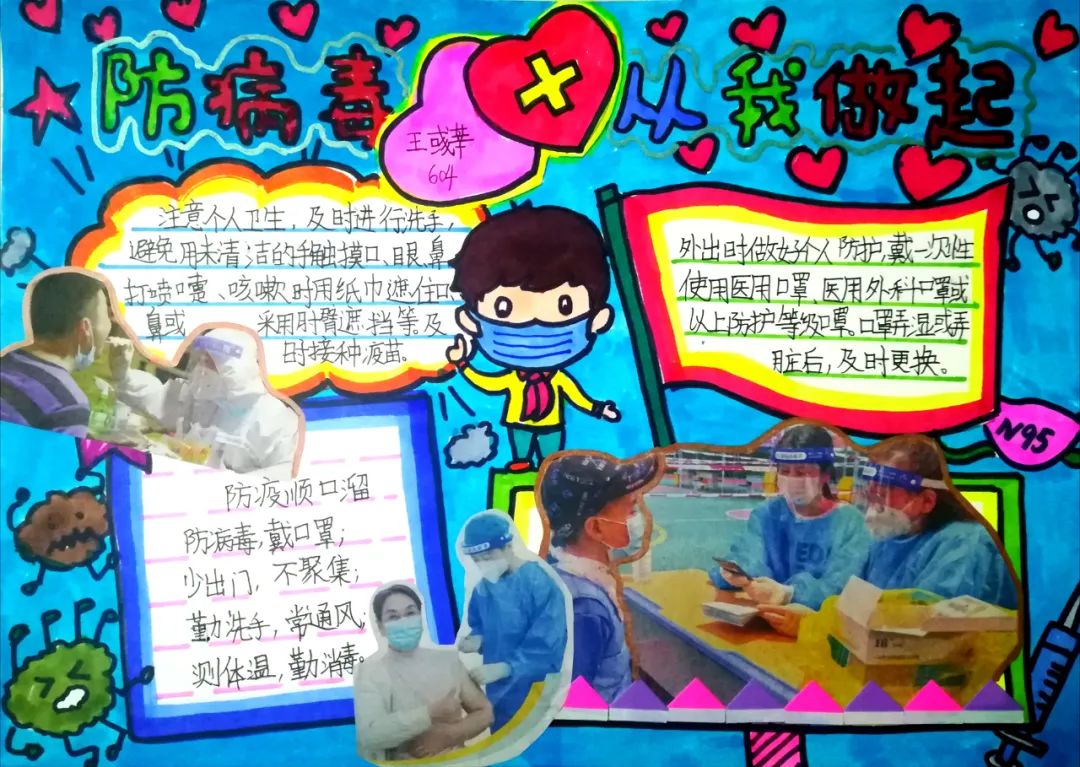 防病毒
从我做起
王彧
604
注意个人卫生，及时进行洗手，
避免用未清洁的手触摸口、眼、鼻
打喷嚏、咳嗽时用纸巾遮住口
鼻或 采用肘臂遮挡等及
时接种疫苗。
外出时做好个人防护，戴一次性
使用医用口罩、医用外科口罩或
以上防护等级口罩。口罩弄湿或弄
脏后，及时更换。
N95
防疫顺口溜
防病毒，戴口罩；
少出门，不聚集；
勤洗手，常通风；
测体温，勤消毒。